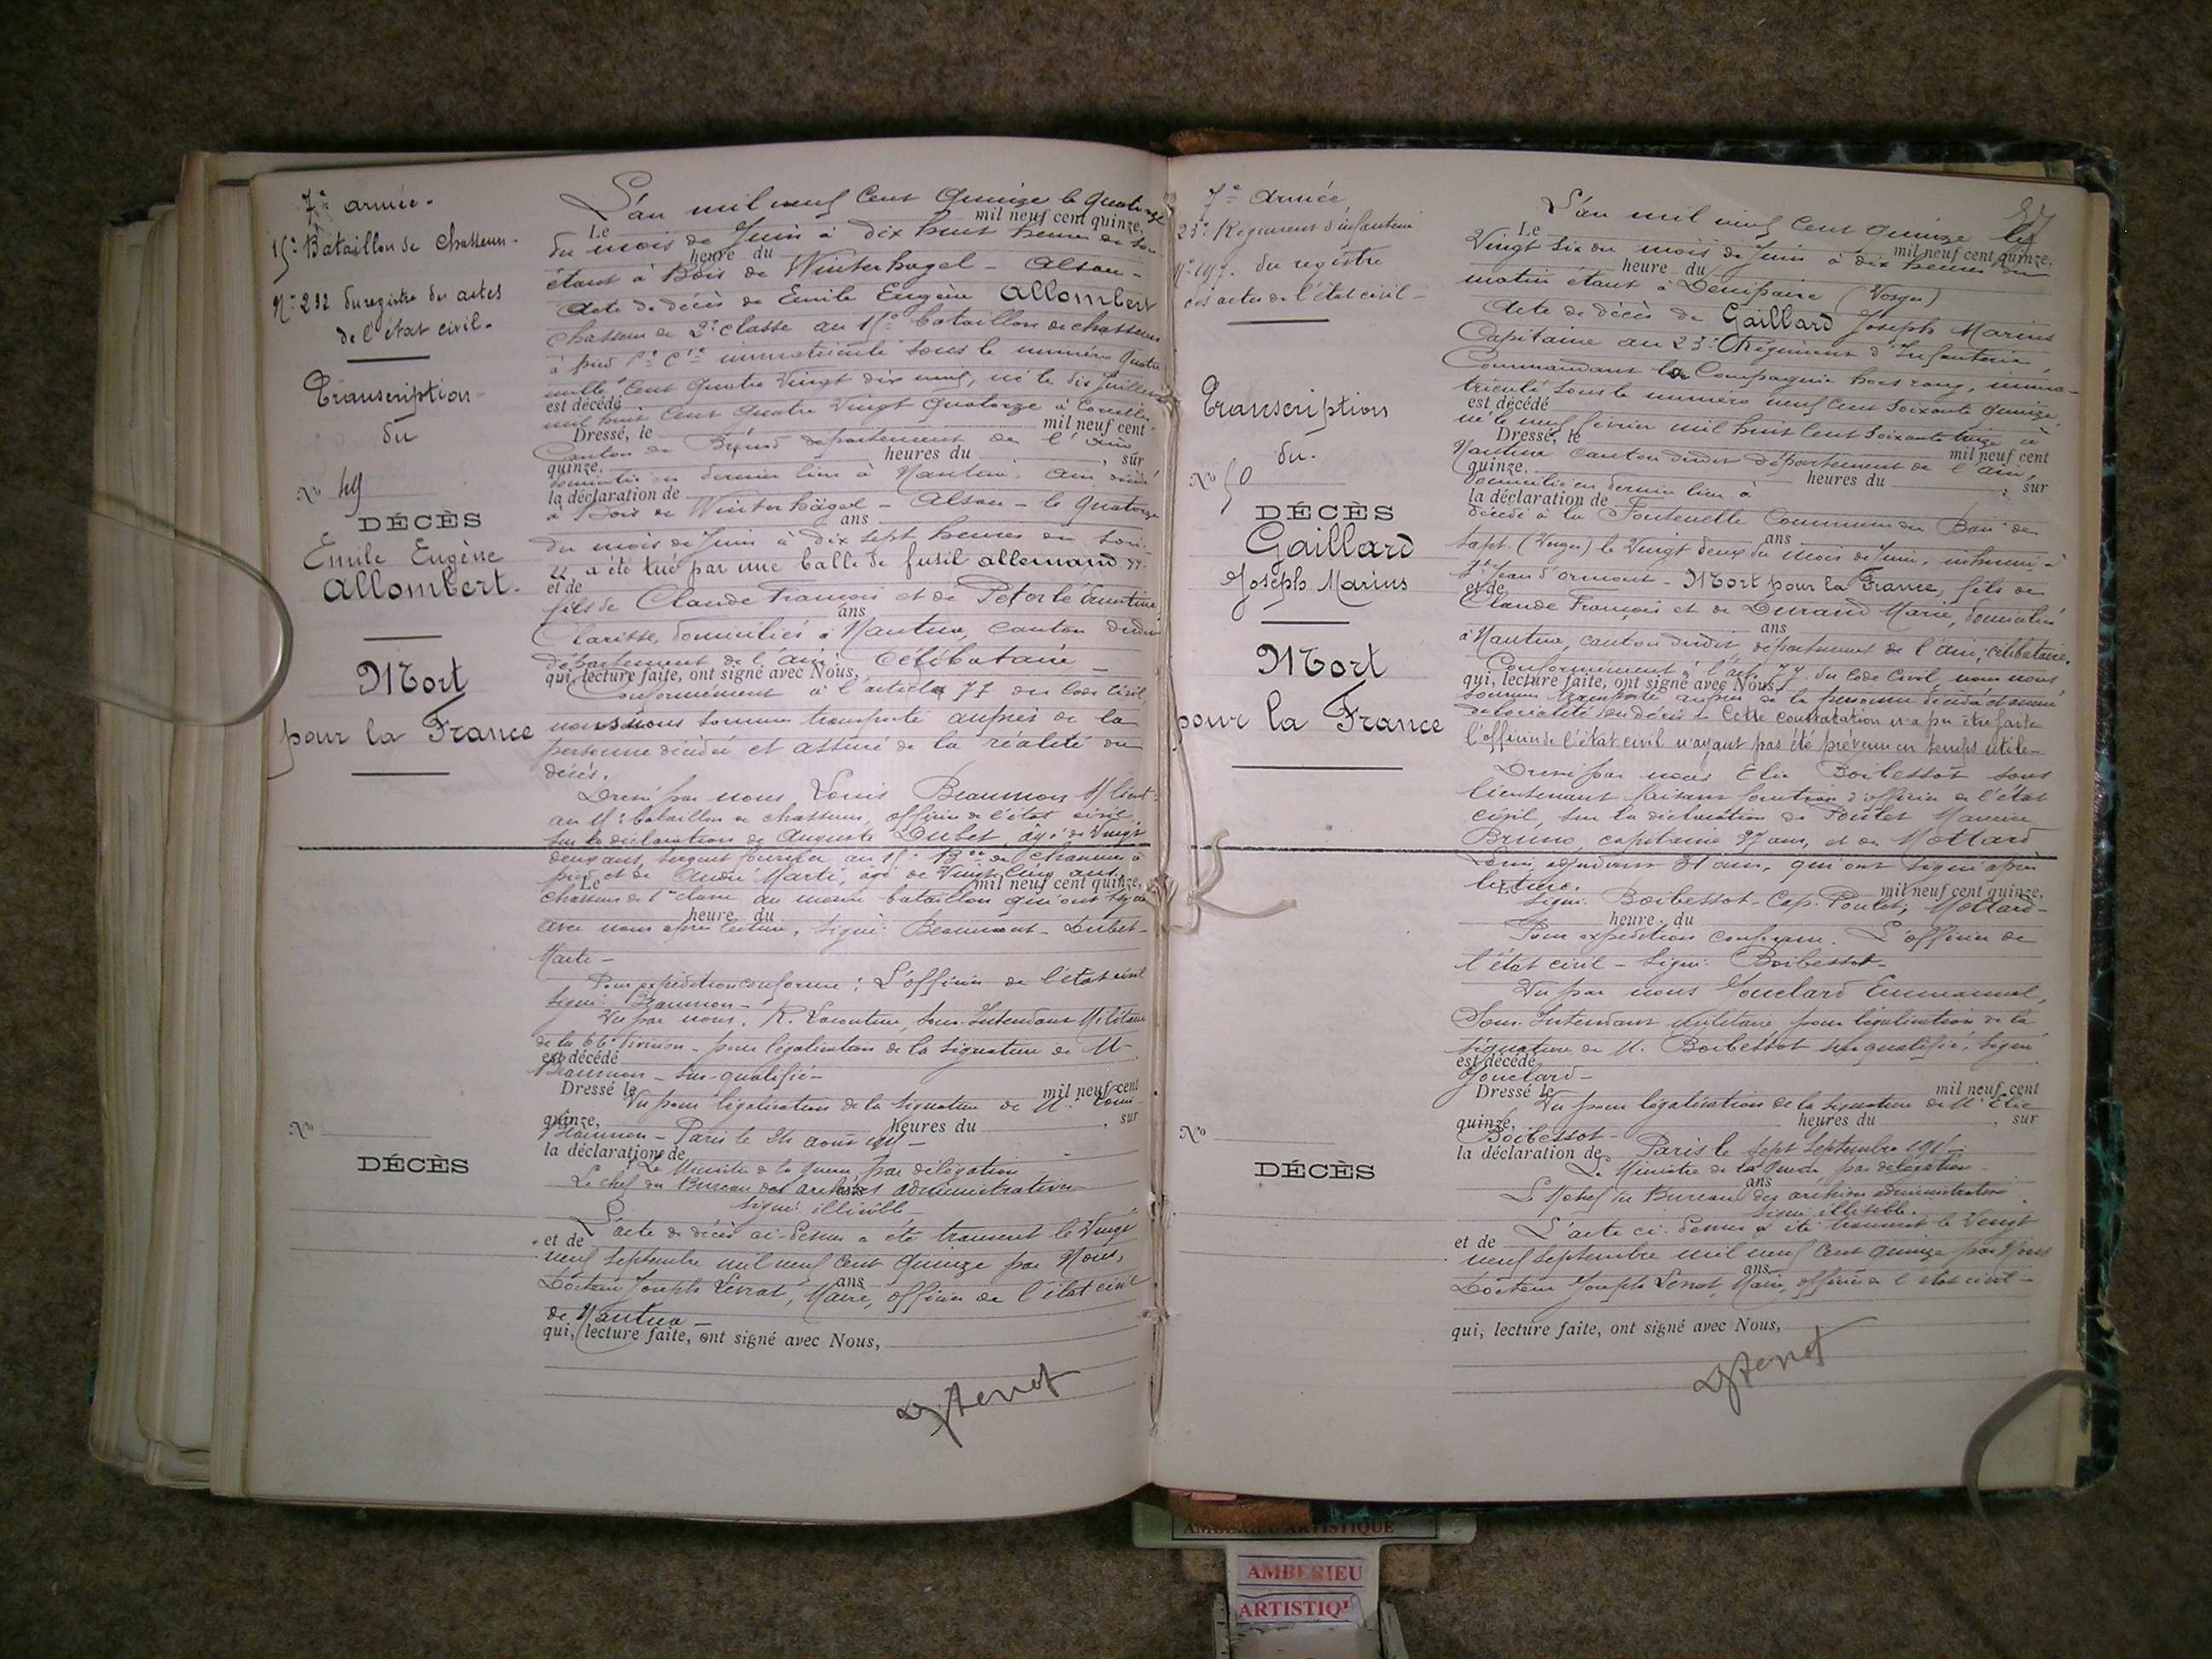 7e armée.
15e Bataillon de Chasseurs.
No 232 du registre des actes
de l'état civil.
Transcription
du
No 49
DÉCÈS
Emile Eugène
Allombert.
Mort
pour la France
No
DÉCÈS
L'an mil neuf Cent Quinze le Quatorze
Le mil neuf cent quinze,
du mois de Juin à dix huit heures du soir
heure du
étant à Bois de Winterhagel - Alsace -
Acte de décès de Emile Eugène Allombert
Chasseur de 2e classe au 15e bataillon de chasseurs
à pied immatriculé sous le numéro quatre
mille cent quatre vingt dix neuf, né le dix Juillet
est décédé
mil huit cent quatre vingt quatorze à
Dressé, le mil neuf cent
Canton de département de l'Ain
quinze, heures du , sur
domicilié en dernier lieu à Nantua, Ain, décédé
la déclaration de
à Bois de Winterhägel - Alsace - le Quatorze
ans
du mois de Juin à dix sept heures du soir.
"a été tué par une balle de fusil allemand"
et de
fils de Claude François et de
ans
Clarisse, domiciliés à Nantua, canton dudit
département de l'Ain. Célibataire -
qui, lecture faite, ont signé avec Nous,
Conformément à l'article 77 du Code Civil,
nous nous sommes transporté auprès de la
personne décédée et assuré de la réalité du
décès.
Dressé par nous Louis Beaumon
au 15e bataillon de chasseurs, officier de l'état civil,
sur la déclaration de Auguste Dubet, âgé de Vingt
deux ans, sergent fourrier au 15e Bon de chasseurs à
pied et de André Marti, âgé de Vingt cinq ans,
Le mil neuf cent quinze,
chasseur de 1re classe au même bataillon qui ont signé
heure du
avec nous après lecture, Signé: Beaumont - Dubet -
Marti -
Pour expédition conforme: L'officier de l'état civil
signé: Beaumon -
Vu par nous, R. Lacouture, Sous-Intendant Militaire
de la 66e division - pour légalisation de la signature de M.
est décédé
Beaumon - sus-qualifié -
Dressé le mil neuf cent
Vu pour légalisation de la signature de M. Louis
quinze, heures du , sur
Beaumon - Paris le 24 août 1915 -
la déclaration de
Le Ministre de la guerre par délégation
Le chef du Bureau des archives administratives
Signé: illisible
L'acte de décès ci-dessus a été transcrit le Vingt
et de
neuf Septembre mil neuf Cent Quinze par Nous,
ans
Docteur Joseph Levrat, Maire, officier de l'état civil
de Nantua -
qui, lecture faite, ont signé avec Nous,
7e Armée
23e Régiment d'infanterie
No 197. du registre
des actes de l'état civil -
Transcription
du.
No 50
DÉCÈS
Gaillard
Joseph Marius
Mort
pour la France
No
DÉCÈS
L'an mil neuf Cent Quinze le
Le mil neuf cent quinze,
Vingt six du mois de Juin à dix heures du
heure du
matin étant à Denipaire (Vosges)
Acte de décès de Gaillard Joseph Marius
Capitaine au 23e Régiment d'Infanterie,
Commandant la Compagnie hors rang, imma-
triculé sous le numéro neuf Cent Soixante Quinze,
est décédé
né le neuf février mil huit Cent Soixante treize à
Dressé, le mil neuf cent
Nantua canton dudit département de l'Ain,
quinze, heures du , sur
domicilié en dernier lieu à
la déclaration de
décédé à la Fontenelle Commune du Ban de
ans
Sapt. (Vosges) le Vingt deux du mois de Juin, inhumé à
St Jean d'ormont - Mort pour la France, fils de
et de
Claude François et de Durand Marie, domiciliés
ans
à Nantua, canton dudit, département de l'Ain, célibataire.
Conformément à l'art. 77 du Code Civil, nous nous
qui, lecture faite, ont signé avec Nous,
sommes transporté auprès de la personne décédée et assuré
de la réalité du décès - Cette constatation n'a pu être faite
l'officier de l'état civil n'ayant pas été prévenu en temps utile -
Dressé par nous Elie Boibessot sous
lieutenant faisant fonction d'officier de l'état
civil, sur la déclaration de Poulet Maurice
Bruno, capitaine 37 ans, et de Mottard
adjudant 31 ans, qui ont signé après
lecture.
Le mil neuf cent quinze,
Signé: Boibessot - Cap. Poulet; Mottard -
heure du
Pour expédition conforme. L'officier de
l'état civil - Signé: Boibessot -
Vu par nous Jouclard Emmanuel,
Sous-Intendant Militaire, pour légalisation de la
signature de M. Boibessot sus qualifié. Signé
est décédé
Jouclard -
Dressé le mil neuf cent
Vu pour légalisation de la signature de M. Elie
quinze, heures du , sur
Boibessot -
la déclaration de Paris le sept Septembre 1915 -
Le Ministre de la Guerre par délégation -
ans
Le chef du Bureau des archives administratives
Signé illisible.
L'acte ci-dessus a été transcrit le Vingt
et de
neuf Septembre mil neuf Cent quinze par Nous
ans
Docteur Joseph Levrat, Maire, officier de l'état civil -
qui, lecture faite, ont signé avec Nous,
AMBERIEU ARTISTIQUE
AMBERIEU
ARTISTIQ